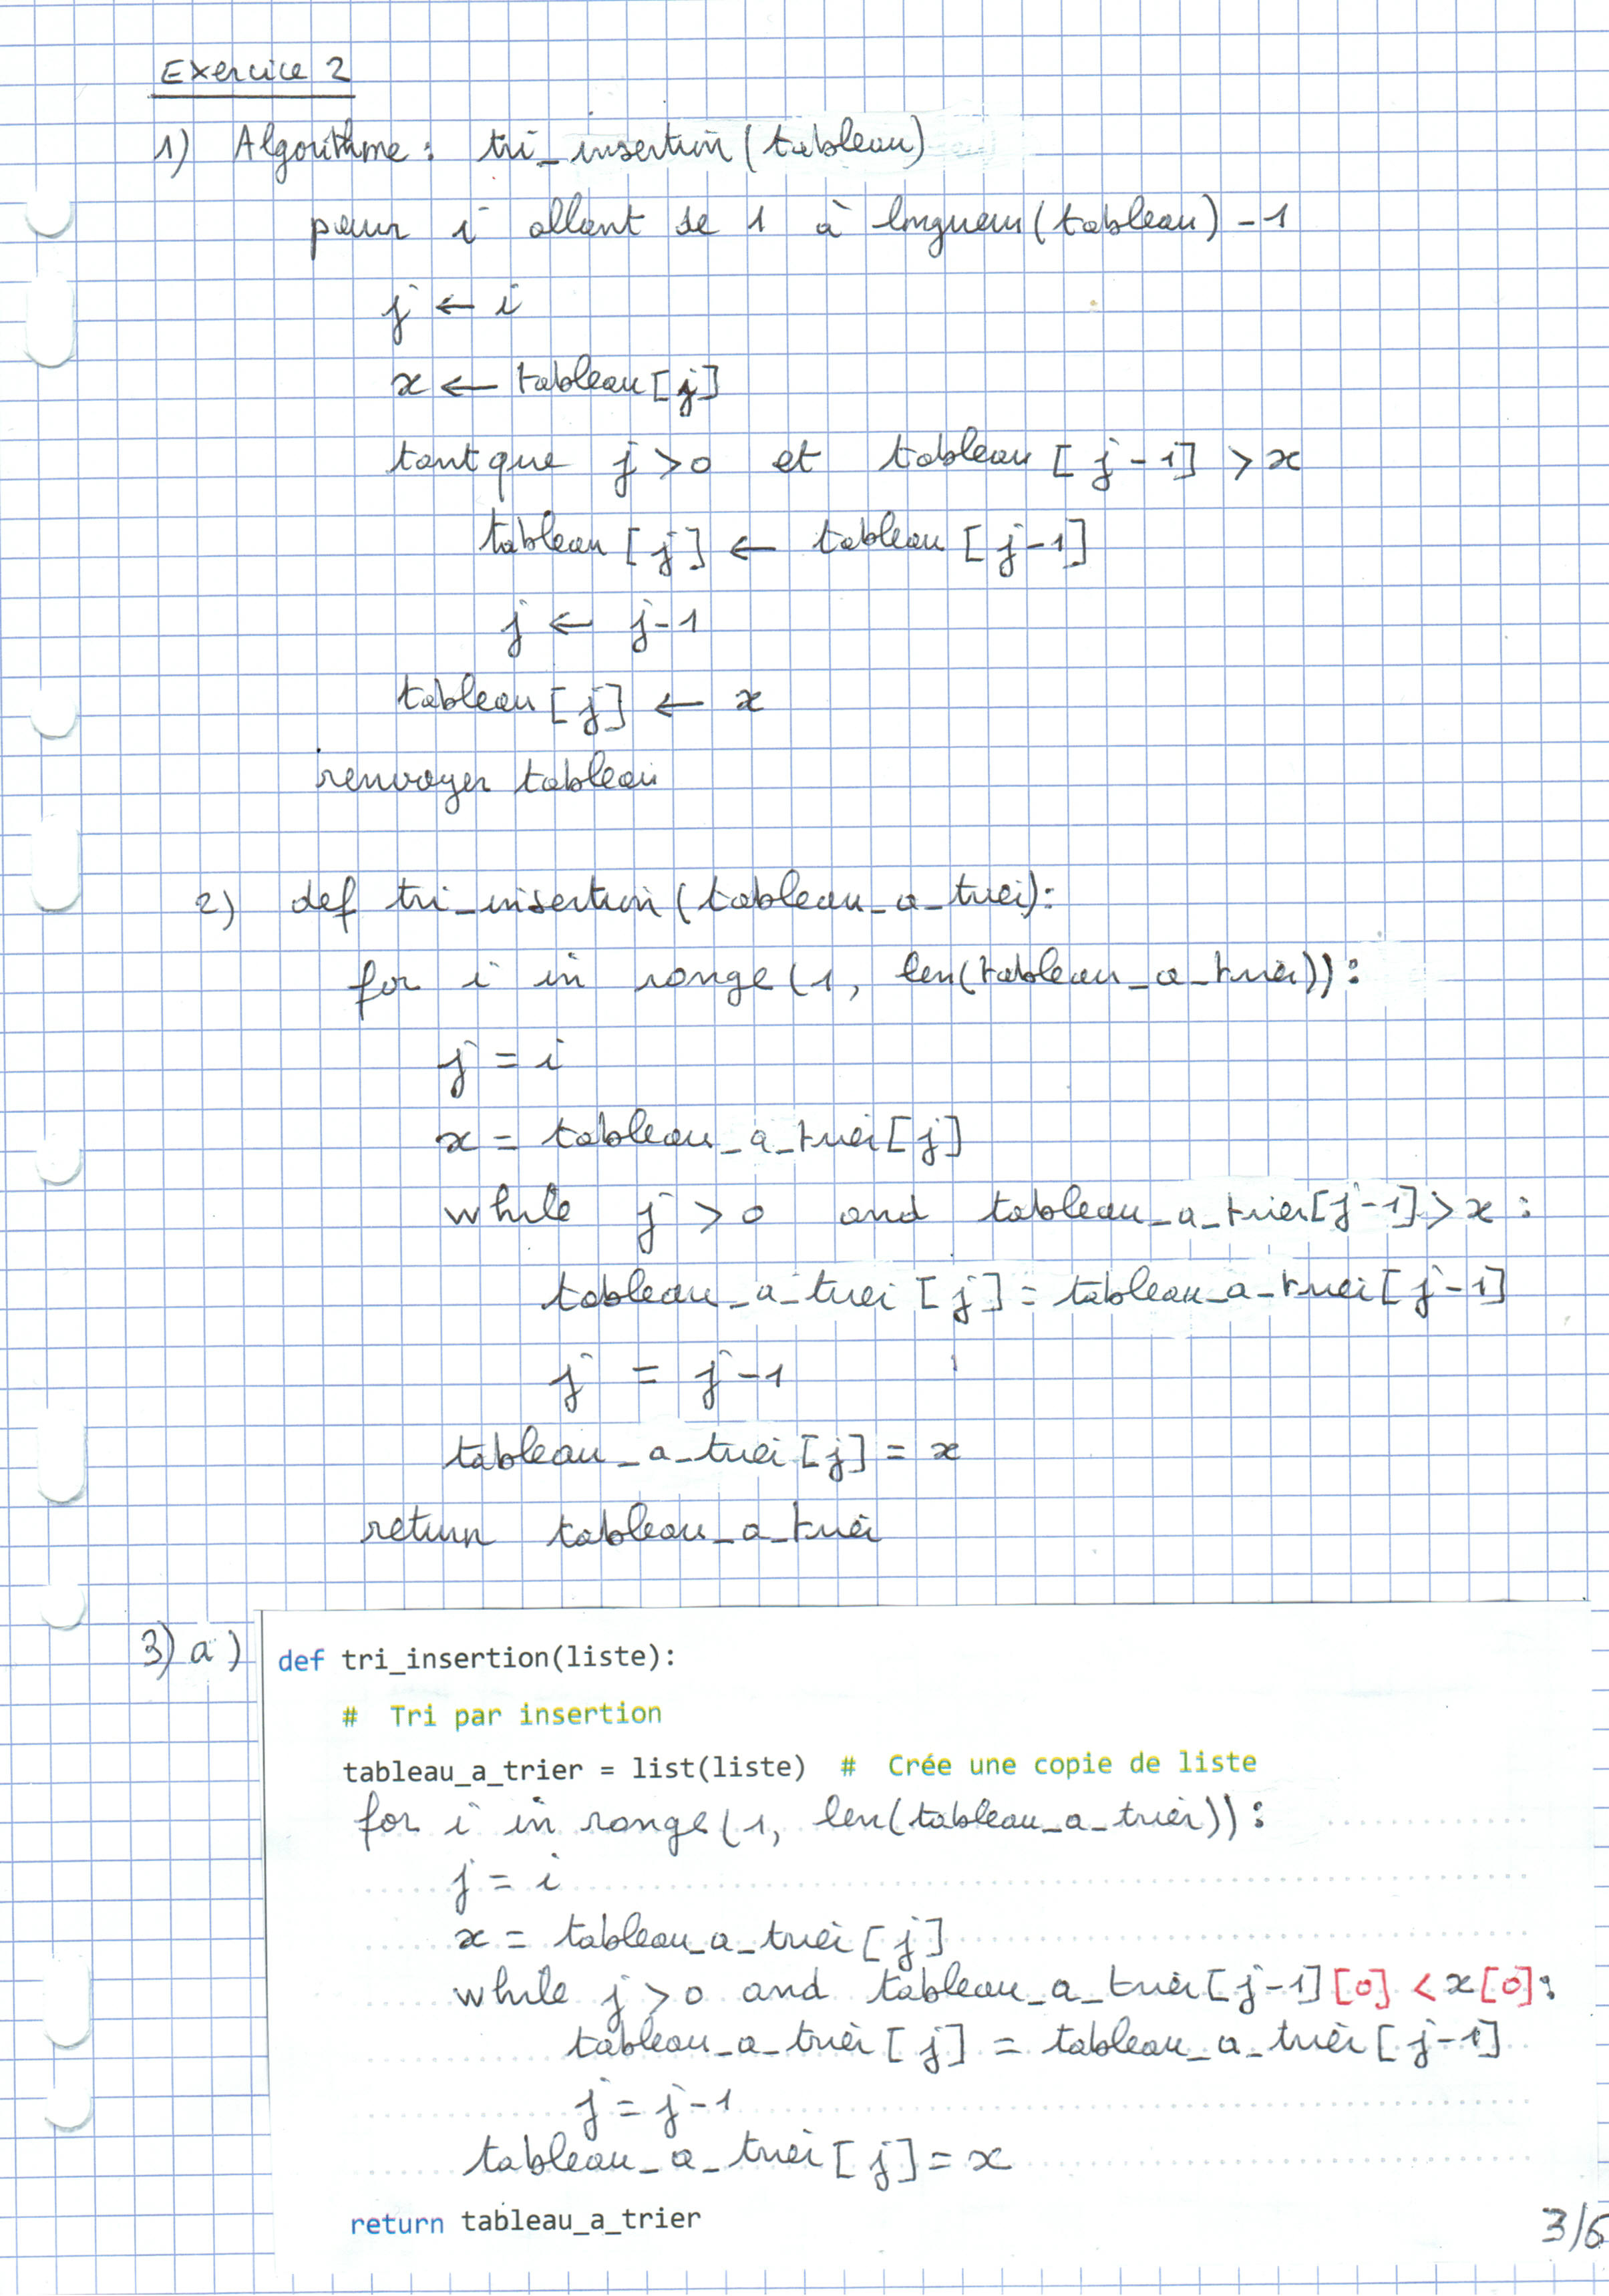 Exercice 2
1) Algorithme : tri_insertion (tableau)
pour i allant de 1 à longueur (tableau) - 1
j ← i
x ← tableau [j]
tant que j > 0 et tableau [j-1] > x
tableau [j] ← tableau [j-1]
j ← j-1
tableau [j] ← x
renvoyer tableau
2) def tri_insertion (tableau_a_trier):
for i in range (1, len(tableau_a_trier)):
j = i
x = tableau_a_trier [j]
while j > 0 and tableau_a_trier [j-1] > x :
tableau_a_trier [j] = tableau_a_trier [j-1]
j = j-1
tableau_a_trier [j] = x
return tableau_a_trier
3) a) def tri_insertion(liste):
# Tri par insertion
tableau_a_trier = list(liste) # Crée une copie de liste
for i in range (1, len(tableau_a_trier)):
j = i
x = tableau_a_trier [j]
while j > 0 and tableau_a_trier [j-1] [0] < x [0] :
tableau_a_trier [j] = tableau_a_trier [j-1]
j = j-1
tableau_a_trier [j] = x
return tableau_a_trier
3/6